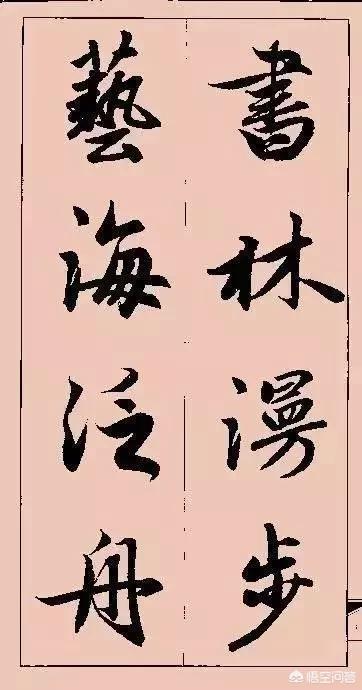 書林漫步
藝海泛舟
悟空问答